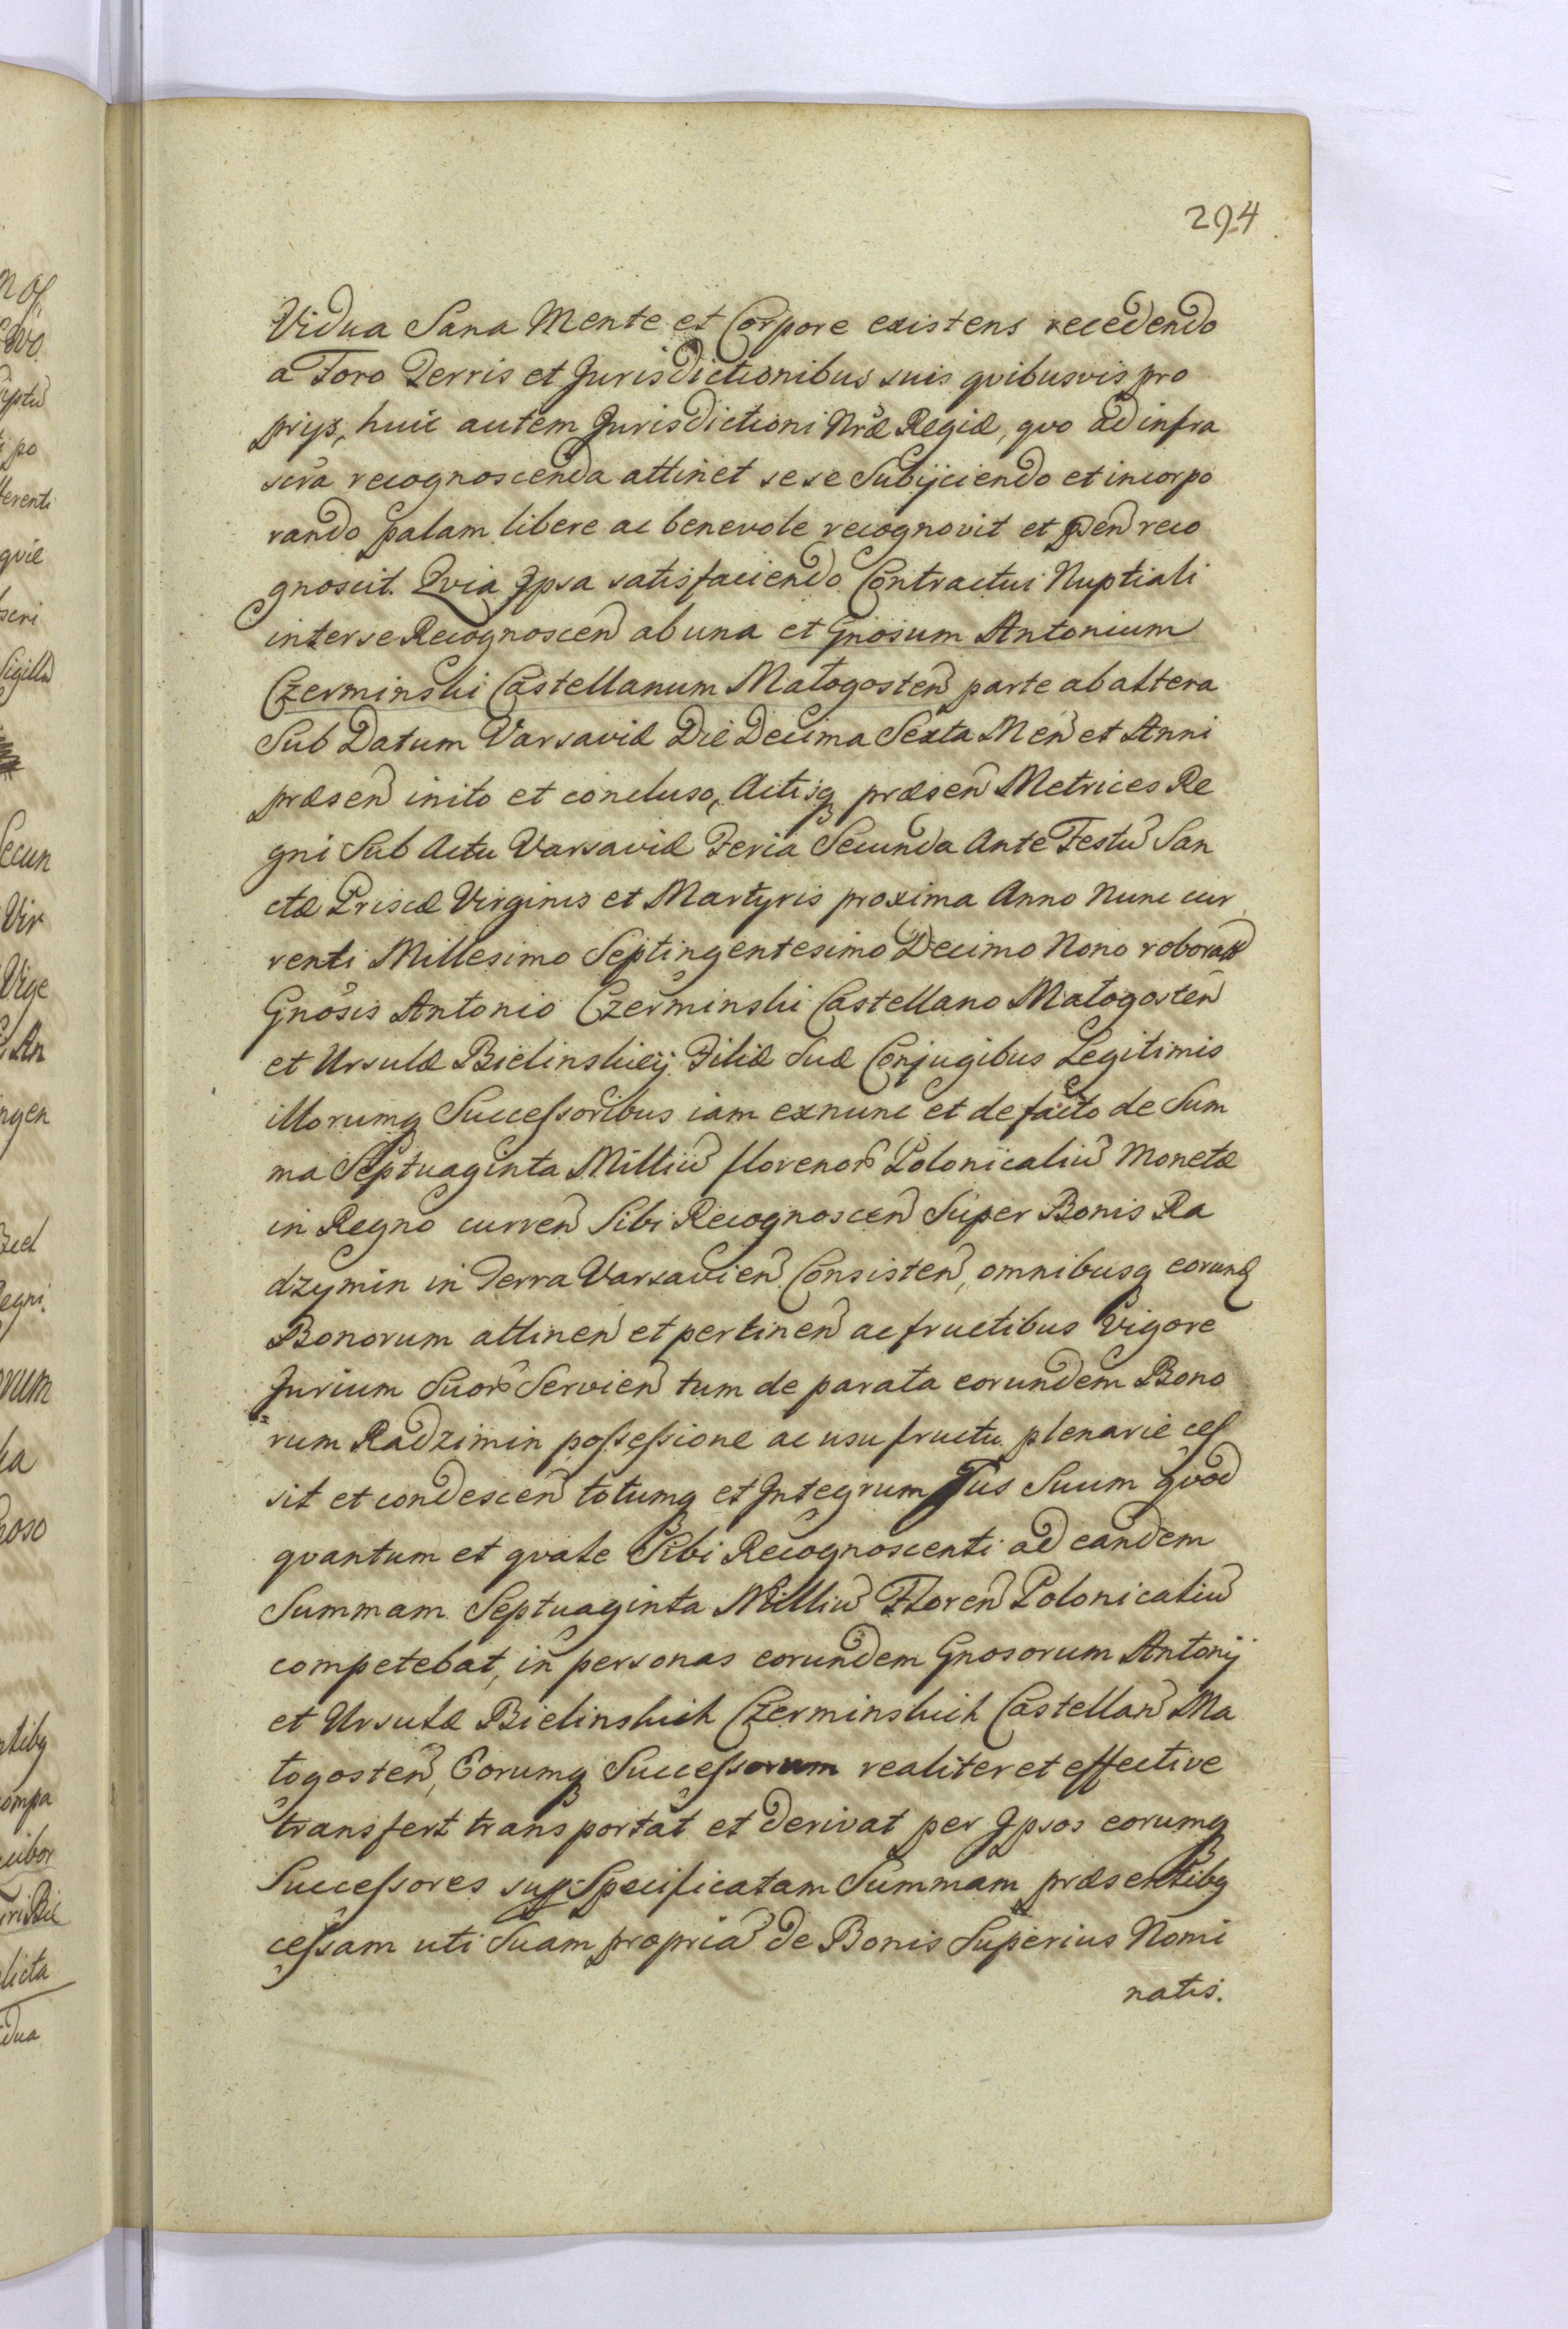 294
Vidua Sana Mente et Corpore existens recedendo
a Foro Terris et Jurisdictionibus suis qvibusvis pro
prijs, huic autem Jurisdictioni Nræ Regiæ, qvo ad infra
scra recognoscenda attinet sese Subijciendo et incorpo
rando palam libere ac benevole recognovit et pen reco
gnoscit. Qvia Ipsa satisfaciendo Contractui Nuptiali
inter se Recognoscen ab una et Gnosum Antonium
Czerminski Castellanum Małogosten parte ab altera
Sub Datum Varsaviæ Die Decima Sexta Men et Anni
præsen inito et concluso, Actisq præsen Metrices Re
gni Sub Actu Varsaviæ Feria Secunda Ante Festu San
ctæ Priscæ Virginis et Martyris proxima Anno Nunc cur
renti Millesimo Septingentesimo Decimo Nono roborat
Gnosis Antonio Czerminski Castellano Małogosten
et Ursulæ Bielinskieÿ Filiæ Suæ Conjugibus Legitimis
illorumq Successoribus iam exnunc et de facto de Sum
ma Septuaginta Milliu florenor Polonicaliu Monetæ
in Regno curren Sibi Recognoscen Super Bonis Ra
dzymin in Terra Varsavien Consisten, omnibusq eorund
Bonorum attinen et pertinen ac fructibus Vigore
Jurium Suor Servien tum de parata eorundem Bono
rum Radzimin possessione ac usufructu plenarie ces
sit et condescen totumq et Integrum Jus Suum qvod
qvantum et qvale Sibi Recognoscenti ad eandem
Summam Septuaginta Milliu Floren Polonicaliu
competebat, in personas eorundem Gnosorum Antonij
et Ursulæ Bielinskich Czerminskich Castellan Ma
łogosten, Eorumq Successorum realiter et effective
transfert transportat et derivat per Ipsos eorumq
Successores sup Specificatam Summam præsentibq
cessam uti Suam propria de Bonis Superius Nomi
natis.